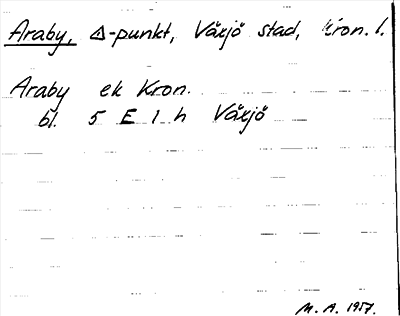 Araby, △-punkt, Växjö stad, Kron. l.
Araby ek Kron.
bl. 5 E 1 h Växjö
M. A. 1957.